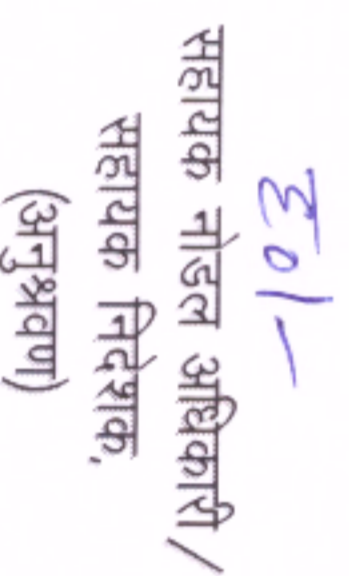 ह0/-
सहायक नोडल अधिकारी/
सहायक निदेशक,
(अनुश्रवण)